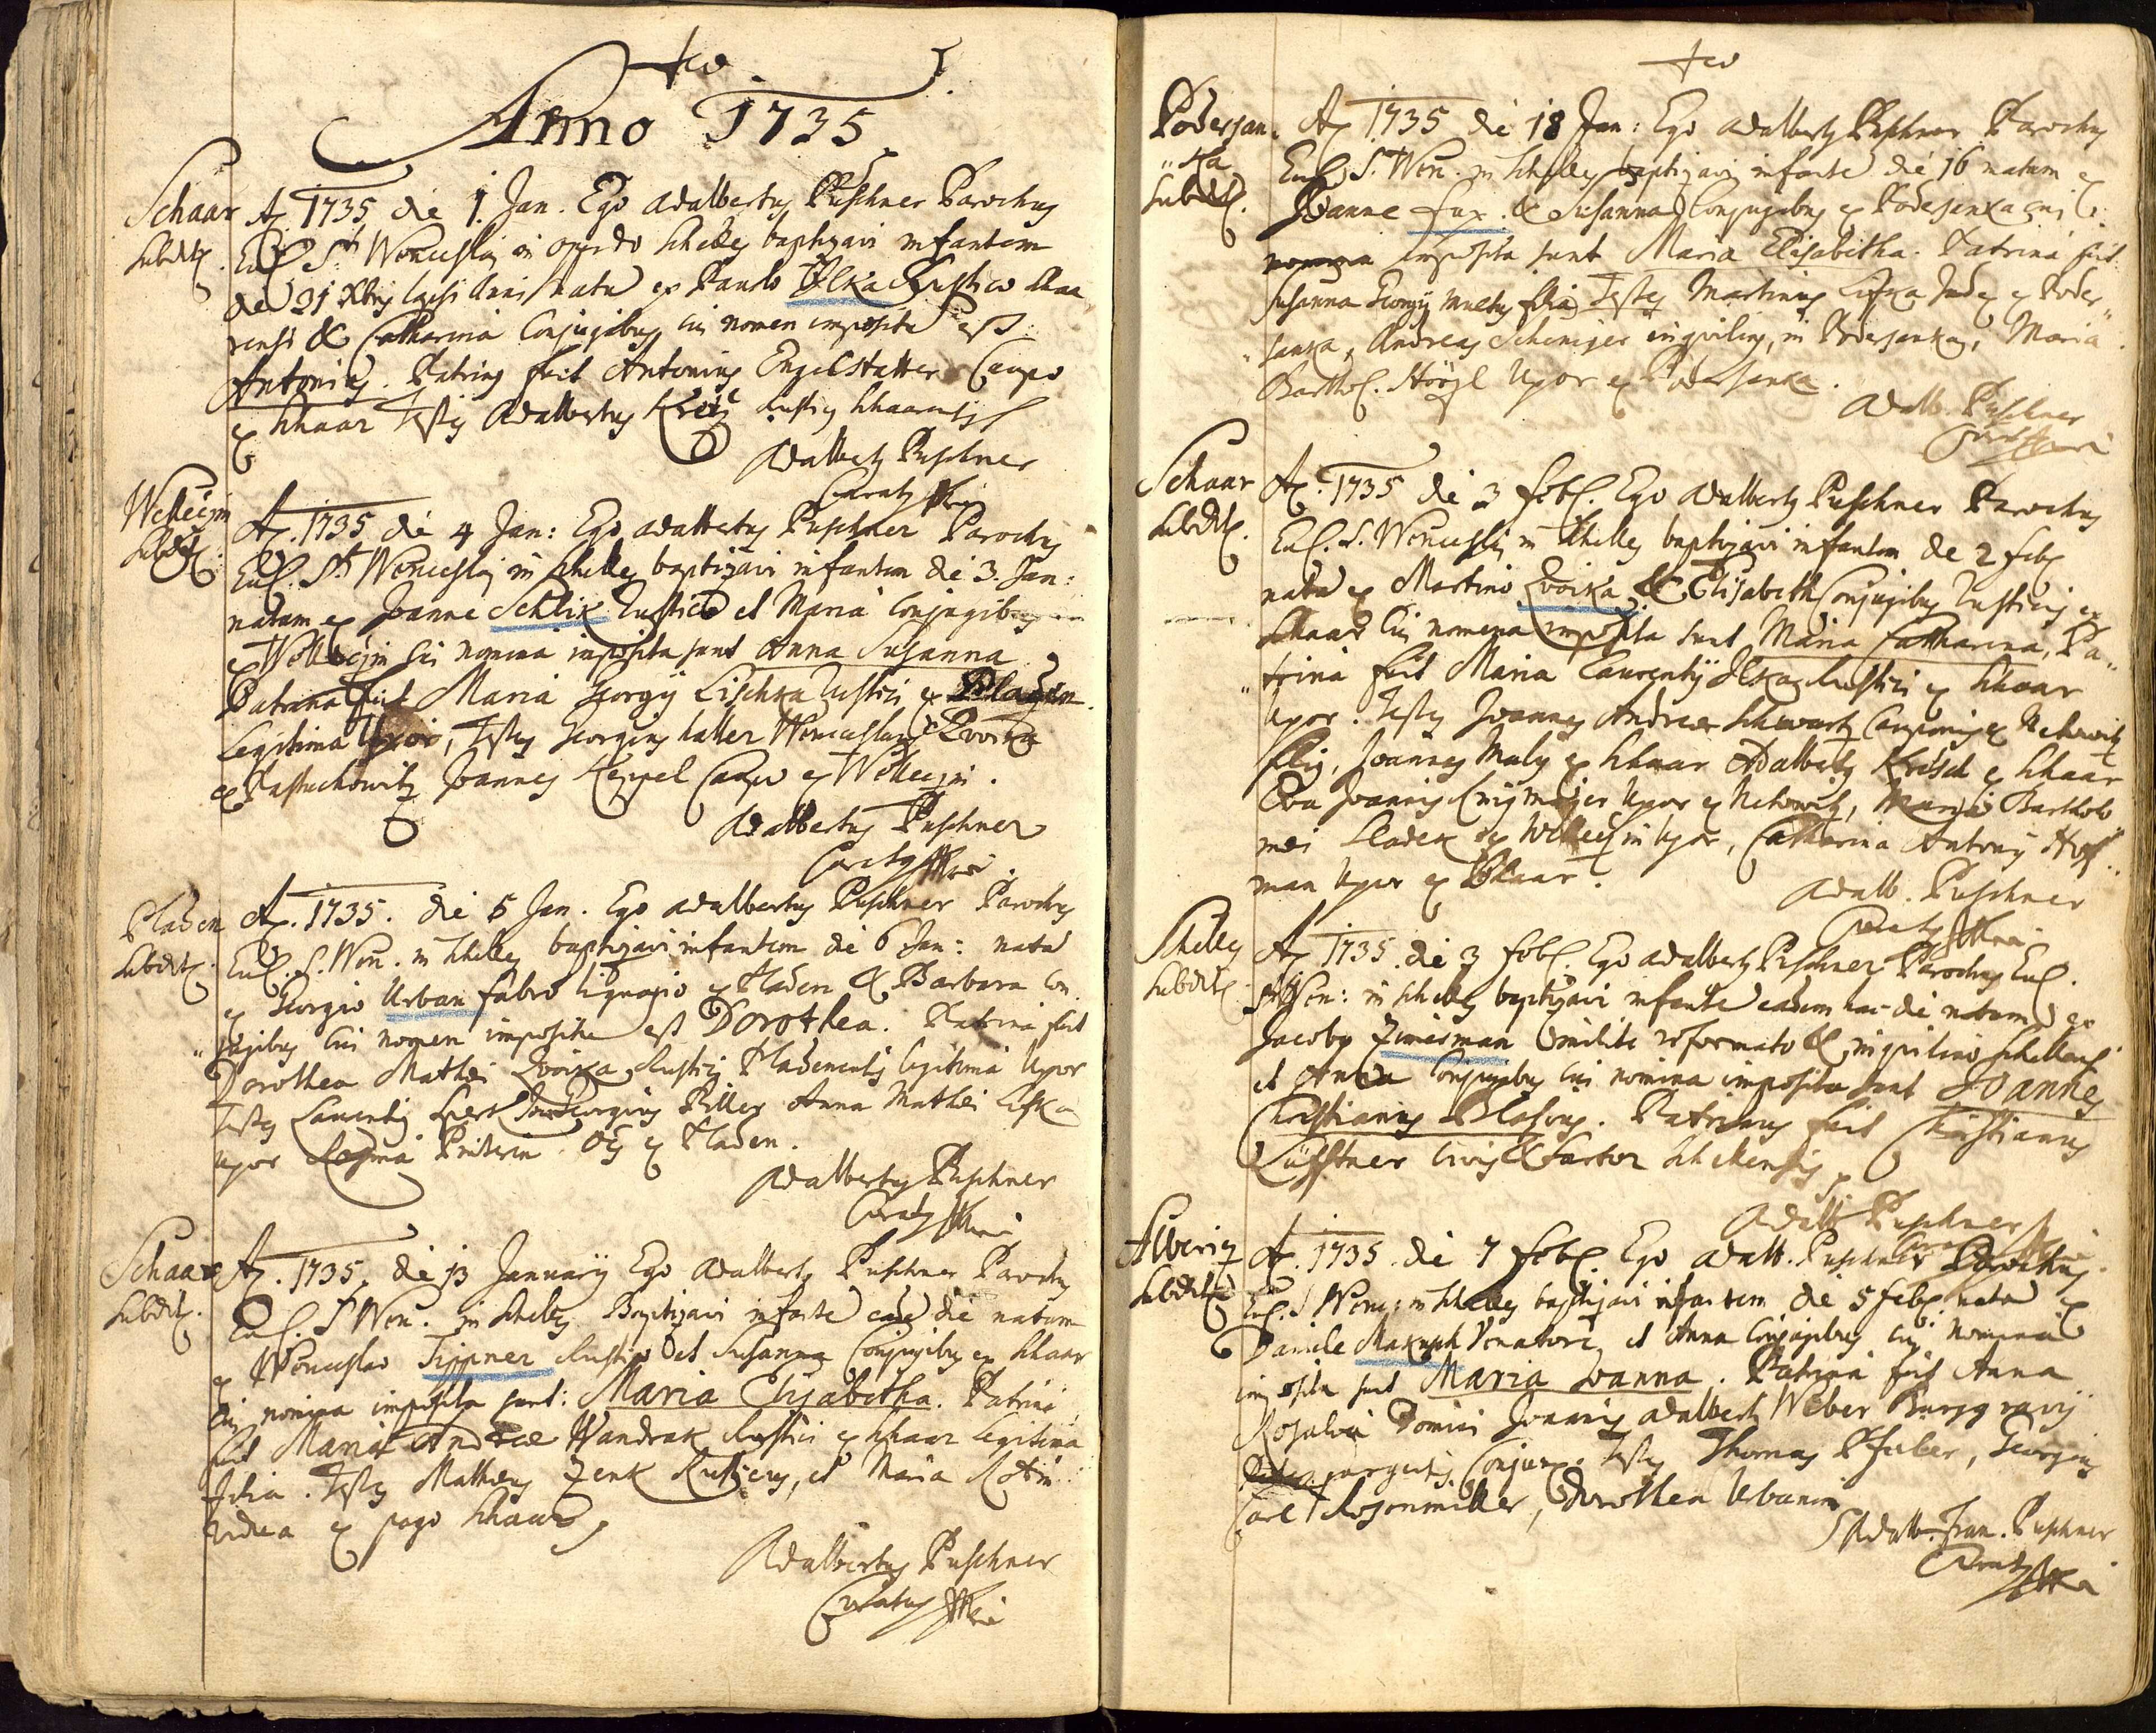 Anno 1735
Schaar
Subdit.
A. 1735 die 1. Jan. Ego Adalbertus Puschner Parochus
Eccl. Sti Wenceslai in oppido Schelles baptizavi infantem
die 31 Xbris lapsi anni natu ex Paulo Ilka Rustico Schaa
rensi & Catharina Conjugibus cui nomen impositu est
Antonius. Patrinus fuit Antonius Engelstatter Caupo
ex Schaar Testes Adalbertus Rusticus Schaarensis
Adalbertus Puschner
Curatus
Wellecjin
Subdit.
A. 1735 die 4 Jan: Ego Adalbertus Puschner Parochus
Eccl. Sti Wenceslai in Schelles baptizavi infantem die 3. Jan:
natam ex Joanne Schlik Rustico et Maria Conjugibus
ex Wellecjin cui nomina imposita sunt Anna Susanna
Patrina fuit Maria Georgij Lischka Rustici ex Pladen
Legitima Uxor, Testes Georgius Haller Wenceslaus Zvoika
ex Pastuchowitz Joannes Keppel Caupo ex Wellecjin.
Adalbertus Puschner
Curatus
Pladen
Subdit.
A. 1735. die 5 Jan. Ego Adalbertus Puschner Parochus
Eccl. S. Wen. in Schelles baptizavi infantem die 6 Jan: nata
ex Georgio Urban fabro lignario ex Pladen & Barbara Con
jugibus cui nomen impositu est Dorothea. Patrina fuit
Dorothea Mathei Zvoika Rustici Pladenensis legitima Uxor
Testes Laurentius Georgius Piller Anna Mathei Liska
Uxor Regina ex Pladen.
Adalbertus Puschner
Curatus
Schaar
Subdit.
A. 1735. die 13 Januarij Ego Adalbertus Puschner Parochus
Eccl. S Wen. in Schelles Baptizavi infante eade die natam
ex Wenceslao Tippner Rustico et Susanna Conjugibus ex Schaar
cui nomina imposita sunt: Maria Elisabetha. Patrina
fuit Maria Andreae Wandrak Rustici ex Schaar legitima
filia. Testes Matheus Zenk Rusticus, et Maria
vidua ex pago Schaar.
Adalbertus Puschner
Curatus
Podersan
ka
Subdit.
A. 1735 die 18 Jan: Ego Adalbertus Puschner Parochus
Eccl. S. Wen. in Schelles baptizavi infante die 16 natam ex
Joanne Fux. & Susanna Conjugibus ex Podersanka cui
nomina imposita sunt Maria Elisabetha. Patrina fuit
Susanna Georgij filia Testes Martinus Liska Judex ex Poder
sanka, Andreas inquilinus, in Podersanka, Maria
Barthol. Uxor ex Podersanka.
Adalb. Puschner
Schaar
Subdit.
A. 1735 die 3 Feb. Ego Adalbertus Puschner Parochus
Eccl. S. Wenceslai in Schelles baptizavi infantem die 2 Feb.
nata ex Martino Zvoika & Elisabeth Conjugibus Rusticis ex
Schaar cui nomina imposita sunt Maria Catharina, Pa
trina fuit Maria Laurentij Ilka Rustici ex Schaar
Uxor. Testes Joannes Andreae Schwartz Cauponis ex
filius, Joannes Maly ex Schaar Adalbertus ex Schaar
Eva Joannis Uxor ex Maria Bartholo
mei Sladek ex Wellecjin Uxor, Catharina Antonij Hof
man Uxor ex Schaar.
Adalb. Puschner
Curatus
Schelles
Subdit.
A. 1735 die 3 Feb. Ego Adalbertus Puschner Parochus Eccl.
S Wen: in Schelles baptizavi infante eadem hac die natum ex
Jacobo Zimerman milite reformato & inquilino Schellensi
et Anna Conjugibus cui nomina imposita sunt Joannes
Christianus Blasius. Patrinus fuit Christianus
civis & Sartor Schellensis
Adalb. Puschner
Alberiz
Subdit.
A. 1735. die 7 Feb. Ego Adalb. Puschner Parochus
Eccl. S Wenc: in Schelles baptizavi infantem die 5 Feb. nata ex
Daniele Makusch Venatore et Anna Conjugibus cui nomina
imposita sunt Maria Joanna. Patrina fuit Anna
Rosalia Domini Joannis Adalberti Weber Burggravij
Conjunx. Testes Thomas Georgius
Carl Rosenmiller, Dorothea Urbanin
Adalb. Fran. Puschner
Curatus